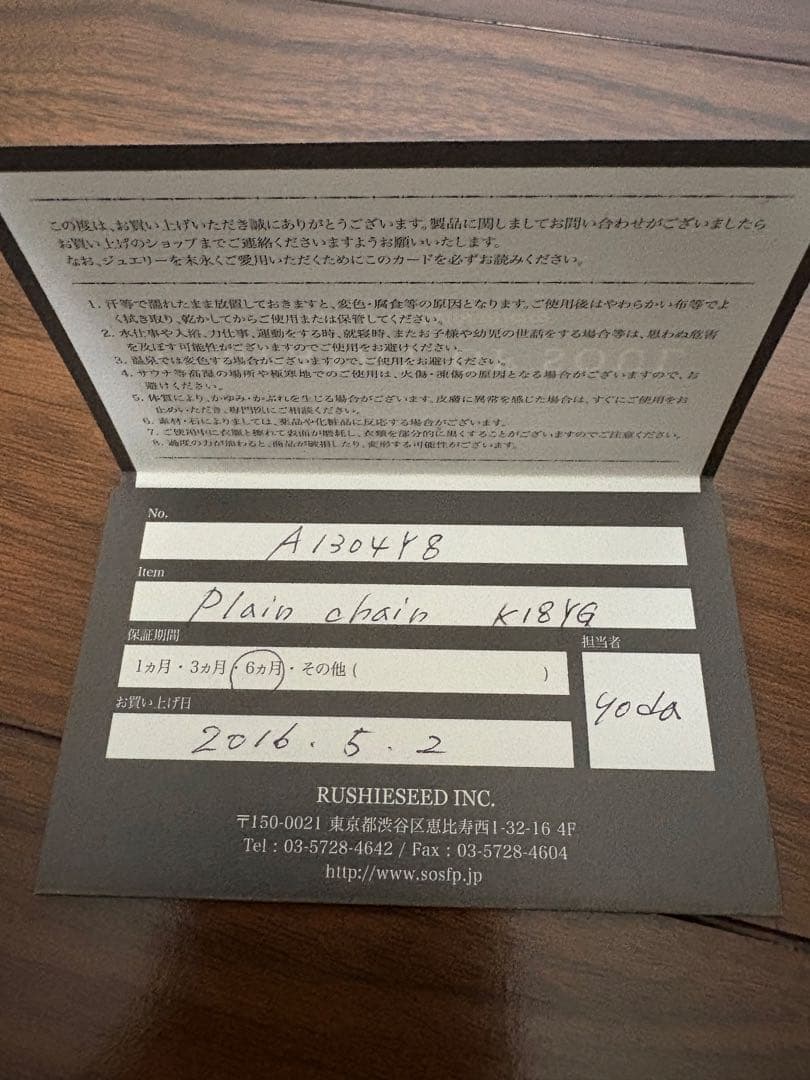 この度は、お買い上げいただき誠にありがとうございます。製品に関しましてお問い合わせがございましたら
お買い上げのショップまでご連絡くださいますようお願いいたします。
なお、ジュエリーを末永くご愛用いただくためにこのカードを必ずお読みください。
1. 汗等で濡れたまま放置しておきますと、変色・腐食等の原因となります。ご使用後はやわらかい布等でよ
く拭き取り、乾かしてからご使用または保管してください。
2. 水仕事や入浴、力仕事、運動をする時、就寝時、またお子様や幼児の世話をする場合等は、思わぬ危害
を及ぼす可能性がございますのでご使用をお避けください。
3. 温泉では変色する場合がございますので、ご使用をお避けください。
4. サウナ等高温の場所や極寒地でのご使用は、火傷・凍傷の原因となる場合がございますので、お
避けください。
5. 体質により、かゆみ・かぶれを生じる場合がございます。皮膚に異常を感じた場合は、すぐにご使用をお
止めいただき、専門医にご相談ください。
6. 素材・石によりましては、薬品や化粧品に反応する場合がございます。
7. ご使用中に衣服と擦れて表面が磨耗し、衣類を部分的に黒くすることがございますのでご注意ください。
8. 過度の力が加わると、商品が破損したり、変形する可能性がございます。
No.
A1304Y8
Item
Plain chain K18YG
保証期間
担当者
1ヵ月・3ヵ月・6ヵ月・その他( )
yoda
お買い上げ日
2016.5.2
RUSHIESEED INC.
〒150-0021 東京都渋谷区恵比寿西1-32-16 4F
Tel : 03-5728-4642 / Fax : 03-5728-4604
http://www.sosfp.jp